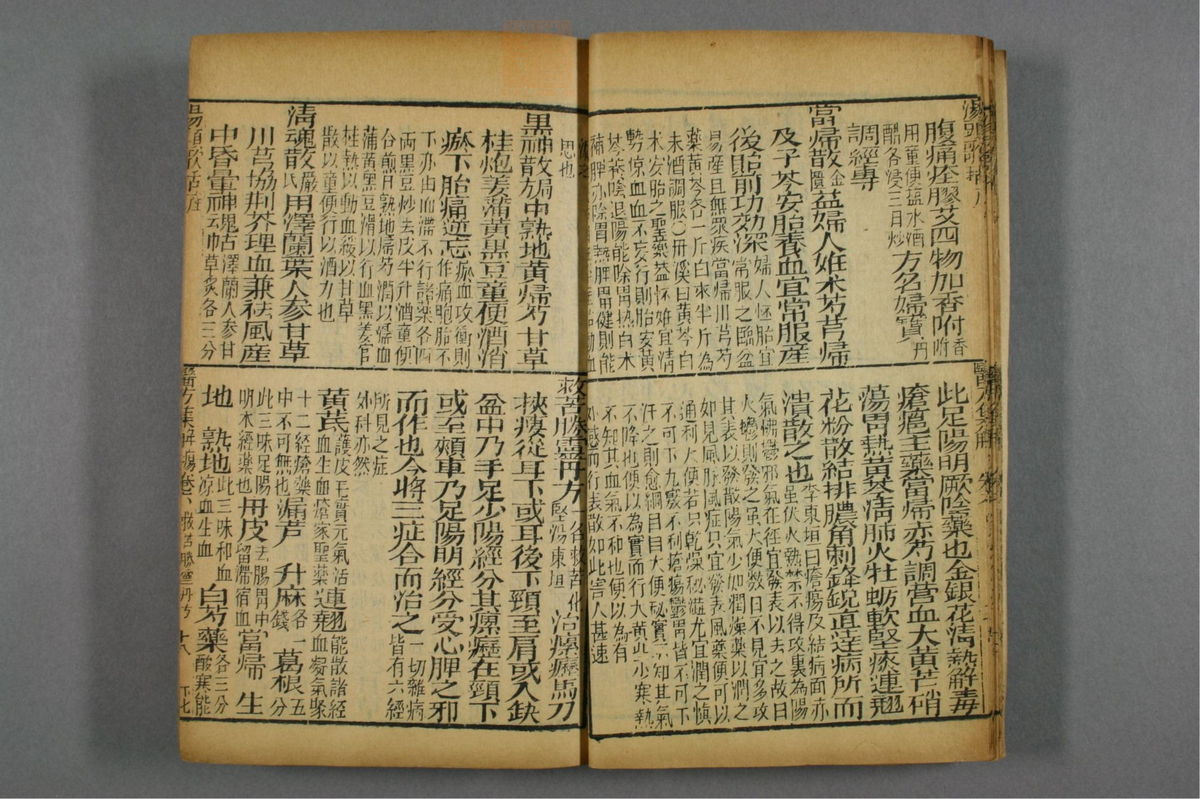 湯頭歌括
腹痛痊膠艾四物加香附香附
用童便鹽水酒
醋各浸三日炒方名婦寶丹
調經專
當歸散金匱益婦人姙朮芍芎歸
及子芩安胎養血宜常服產
後胎前功效深婦人姙胎宜
常服之臨盆
易產且無眾疾當歸川芎芍
藥黃芩各一斤白朮半斤為
末酒調服○丹溪曰黃芩白
朮安胎之聖藥蓋怀姙宜清
熱涼血血不妄行則胎安黃
芩養陰退陽能除胃熱白朮
補脾亦除胃熱脾胃健則能
思也
黑神散局中熟地黃歸芍甘草
桂炮姜蒲黃黑豆童便酒消
瘀下胎痛逆忘瘀血攻衝則
作痛胞胎不
下亦由血滯不行諸藥各四
兩黑豆炒去皮半升酒童便
合煎日熟地歸芍潤以濡血
蒲黃黑豆滑以行血黑姜官
桂熱以動血緩以甘草
散以童便行以酒力也
清魂散嚴氏用澤蘭葉人參甘草
川芎協荊芥理血兼祛風產
中昏暈神鬼占澤蘭人參甘
草各三分
湯頭歌括
醫方集解
此足陽明厥陰藥也金銀花清熱解毒
瘡瘍主藥當歸赤芍調營血大黃芒硝
蕩胃熱黃芩清肺火牡蠣軟堅痰連翹
花粉散結排膿角刺鋒銳直達病所而
潰散之也李東垣曰瘡瘍及結病面赤
雖伏火熱禁不得攻裏為陽
氣怫鬱邪氣在徑宜發表以去之故曰
火鬱則發之雖大便数日不見宜多攻
其表以發散陽氣少加潤燥藥以潤之
如見風脉風症只宜發表風藥便可以
通利大便若只乾燥秘澁尤宜潤之慎
不可下九竅不利瘡瘍鬱胃皆不可下
汗之則愈綱目大便秘實不知其氣
不降也便以為實而行大黃此少寒熱
不知其血氣不和也便以為有
外感而行表散如此害人甚速
救苦勝靈丹方
治瘰癧馬刀
挾癭從耳下或耳後下頸至肩或入缺
盆中乃手足少陽經分其瘰癧在頸下
或至頰車乃足陽明經分受心脾之邪
而作也今將三症合而治之一切雜病
皆有六經
所見之症
外科亦然
黃芪護皮毛實元氣活
血生血瘡家聖藥連翹能散諸經
血凝氣聚
十二經瘡藥
中不可無也漏芦升麻各一
錢葛根五
分
此三味足陽
明本經藥也丹皮去腸胃中
留滯宿血當歸生
地熟地此三味和血
凉血生血白芍藥各三分
酸寒能
醫方集解瘍卷八救苦勝靈丹方十八